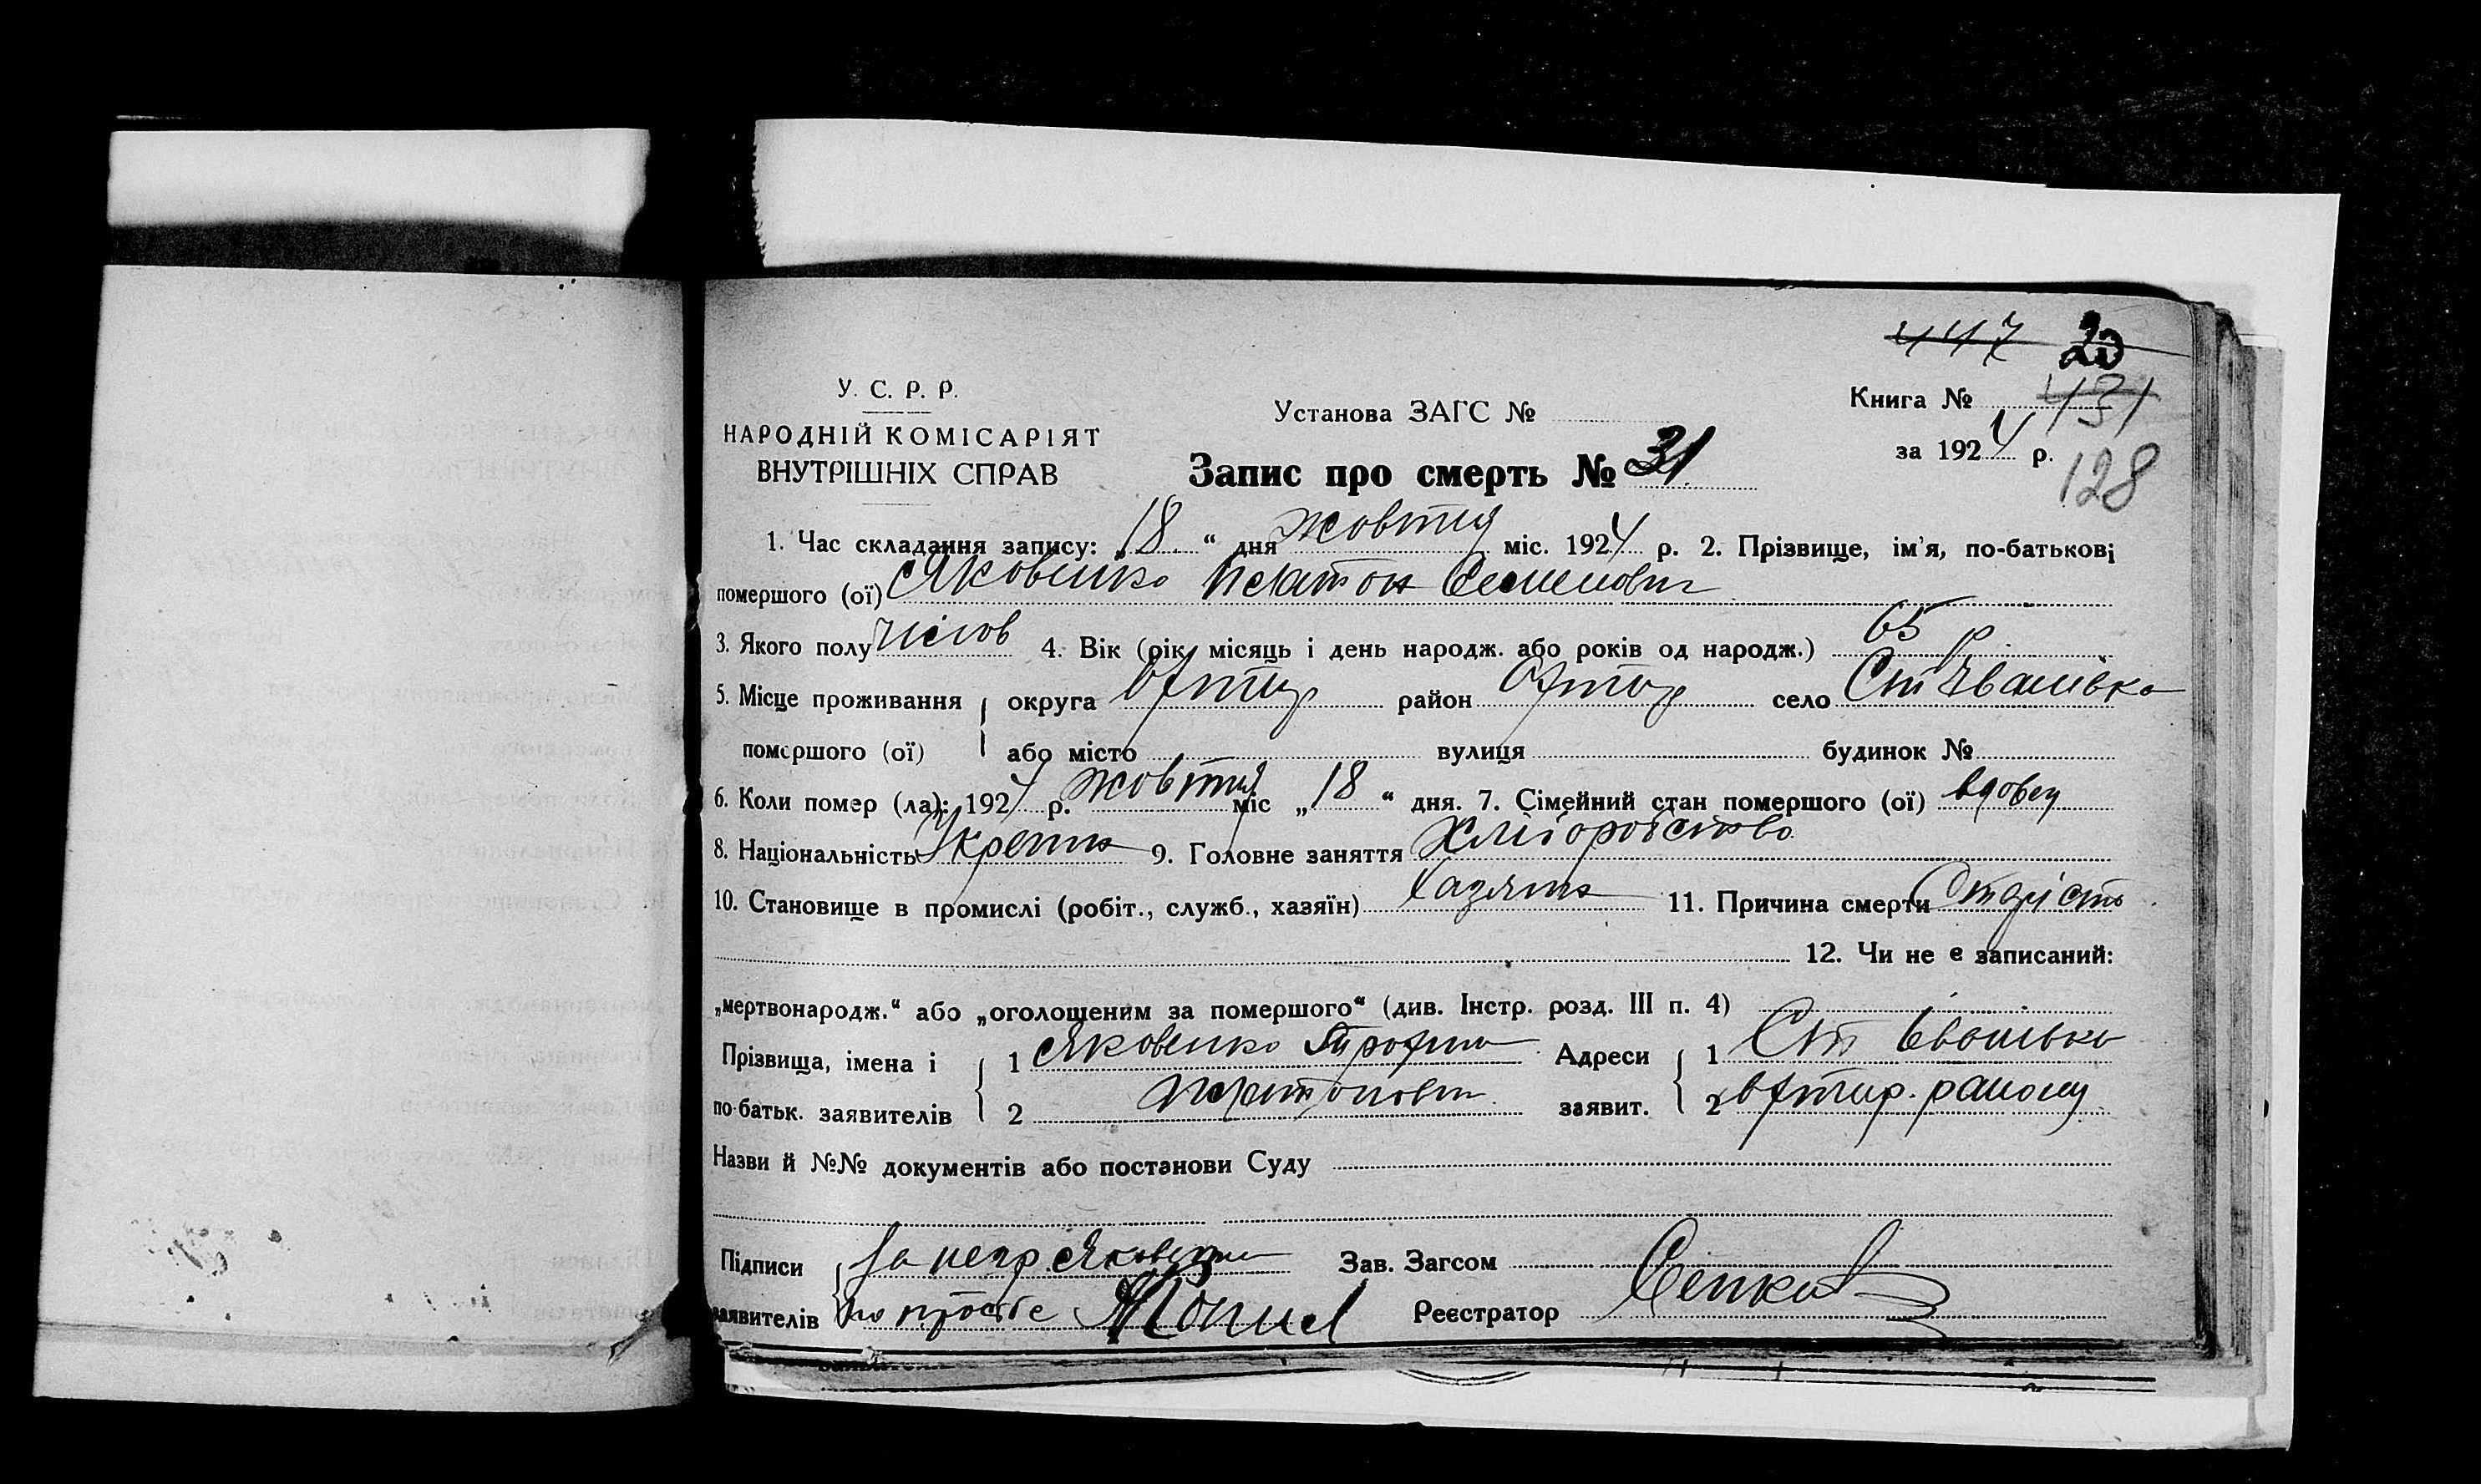 447 20
У. С. Р. Р.
Установа ЗАГС №
Книга № 131
НАРОДНІЙ КОМІСАРІЯТ
ВНУТРІШНІХ СПРАВ
за 1924 р.
128
Запис про смерть № 31
1. Час складання запису: „18“ дня жовтня міс. 1924 р. 2. Прізвище, ім'я, по-батькові
помершого (ої) Яковенко Платон Семенович
3. Якого полу чолов 4. Вік (рік, місяць і день народж. або років од народж.) 65 р
5. Місце проживання округа Охтир район Охтир село Ст Іванівка
помершого (ої) або місто вулиця будинок №
6. Коли помер (ла): 1924 р. жовтня міс „18“ дня. 7. Сімейний стан помершого (ої) вдовец
8. Національність 9. Головне заняття Хліборобство
10. Становище в промислі (робіт., служб., хазяїн) 11. Причина смерти Старість
12. Чи не є записаний:
„мертвонародж.“ або „оголошеним за помершого“ (див. Інстр. розд. III п. 4)
Прізвища, імена і 1 Яковенко Трофим Адреси 1 Ст Іванівка
по-батьк. заявителів 2 Платонович заявит. 2 Охтир. району
Назви й №№ документів або постанови Суду
Підписи за негр Яковенко Зав. Загсом
заявителів по просьбе Реєстратор